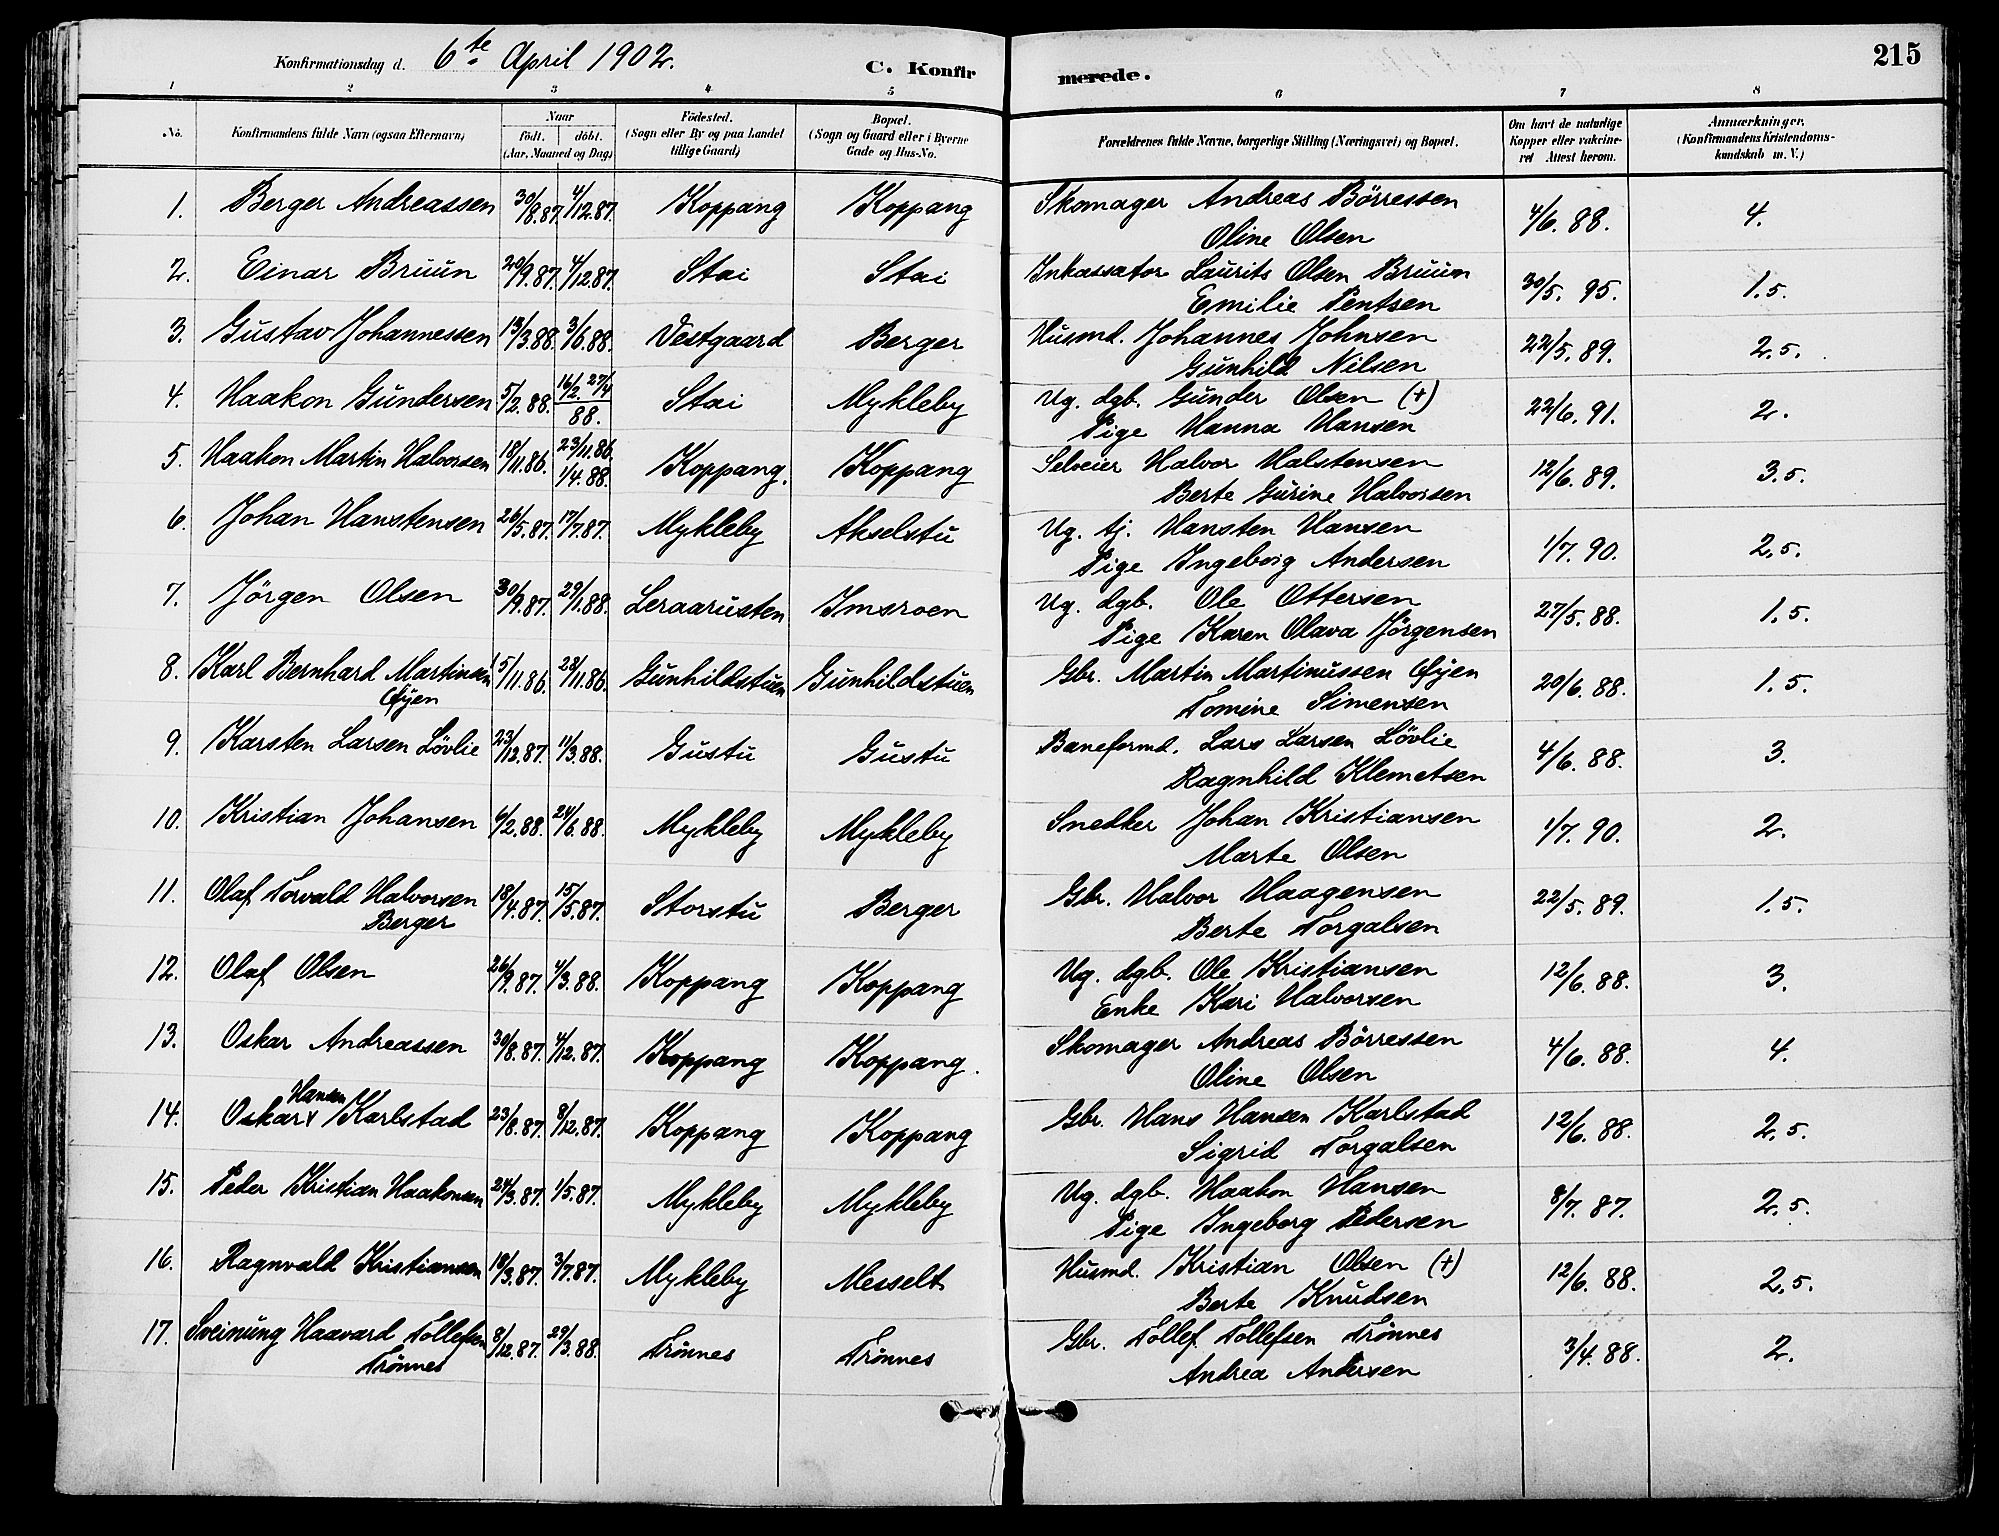 Konfirmationsdag d. 6te April 1902.
C. Konfirmerede.
215
1 2 3 4 5 6 7 8
No.
Konfirmandens fulde Navn (ogsaa Efternavn)
Naar
födt. döbt.
(Aar, Maaned og Dag)
Födested.
(Sogn eller By og paa Landet
tillige Gaard)
Bopæl.
(Sogn og Gaard eller i Byerne
Gade og Hus-No.
Forældrenes fulde Navne, borgerlige Stilling (Næringsvei) og Bopæl.
Om havt de naturlige
Kopper eller vakcine-
ret Attest herom.
Anmærkninger.
(Konfirmandens Kristendoms-
kundskab m. V.)
1. Berger Andreassen 30/8.87. 4/12.87. Koppang Koppang Skomager Andreas Börressen 4/6. 88. 4.
Oline Olsen
2. Einar Bruun 20/9.87. 4/12.87. Stai Stai Inkassator Laurits Olsen Bruun 30/5. 95. 1.5.
Emilie Pentsen
3. Gustav Johannessen 13/3.88. 3/6.88. Vestgaard Berger Husmd. Johannes Johnsen 22/5. 89. 2.5.
Gunhild Nilsen
4. Haakon Gundersen 5/2.88. 16/2. 27/4 88. Stai Mykleby Ug. dgb. Gunder Olsen (+) 22/6. 91. 2.
Pige Hanna Hansen
5. Haakon Martin Halvorsen 18/11.86. 23/11.86. 1/4.88. Koppang. Koppang Selveier Halvor Halstensen 12/6. 89. 3.5.
Berte Gurine Halvorsen
6. Johan Hanstensen 26/5.87. 17/7.87. Mykleby Akselstu Ug. tj. Hansten Hansen 1/7. 90. 2.5.
Pige Ingeborg Andersen
7. Jörgen Olsen 30/9.87. 29/1.88. Leraarusten Imsroen Ug. dgb. Ole Ottersen 27/5.88. 1.5.
Pige Karen Olava Jörgensen
8. Karl Bernhard Martinsen 15/11.86. 28/11.86. Gunhildstuen Gunhildstuen Gbr. Martin Martinussen Öyen 20/6. 88. 1.5.
Öyen Tomine Simensen
9. Karsten Larsen Lövlie 23/12.87. 11/3.88. Gustu Gustu Baneformd. Lars Larsen Lövlie 4/6. 88. 3.
Ragnhild Klemetsen
10. Kristian Johansen 6/2.88. 24/6.88. Mykleby Mykleby Snedker Johan Kristiansen 1/7. 90. 2.
Marte Olsen
11. Olaf Torvald Halvorsen 18/4.87. 15/5.87. Storstu Berger Gbr. Halvor Haagensen 22/5. 89. 1.5.
Berger Berte Torgalsen
12. Olaf Olsen 26/9.87. 4/3.88. Koppang Koppang Ug. dgb. Ole Kristiansen 12/6. 88. 3.
Enke Kari Halvorsen
13. Oskar Andreassen 30/8.87. 4/12.87. Koppang Koppang. Skomager Andreas Börressen 4/6. 88. 4.
Oline Olsen
Hansen
14. Oskar x Karlstad 23/8.87. 8/12.87. Koppang Koppang Gbr. Hans Hansen Karlstad 12/6. 88. 2.5.
Sigrid Torgalsen
15. Peder Kristian Haakonsen 24/3.87. 1/5.87. Mykleby Mykleby Ug. dgb. Haakon Hansen 8/7. 87. 2.5.
Pige Ingeborg Pedersen
16. Ragnvald Kristiansen 18/3.87. 3/7.87. Mykleby Messelt Husmd. Kristian Olsen (+) 12/6. 88. 2.5.
Berte Knudsen
17. Sveinung Haavard Tollefsen 8/12.87. 29/3.88. Trönnes Trönnes Gbr. Tollef Tollefsen Trönnes 3/4.88. 2.
Trönnes Andrea Andersen